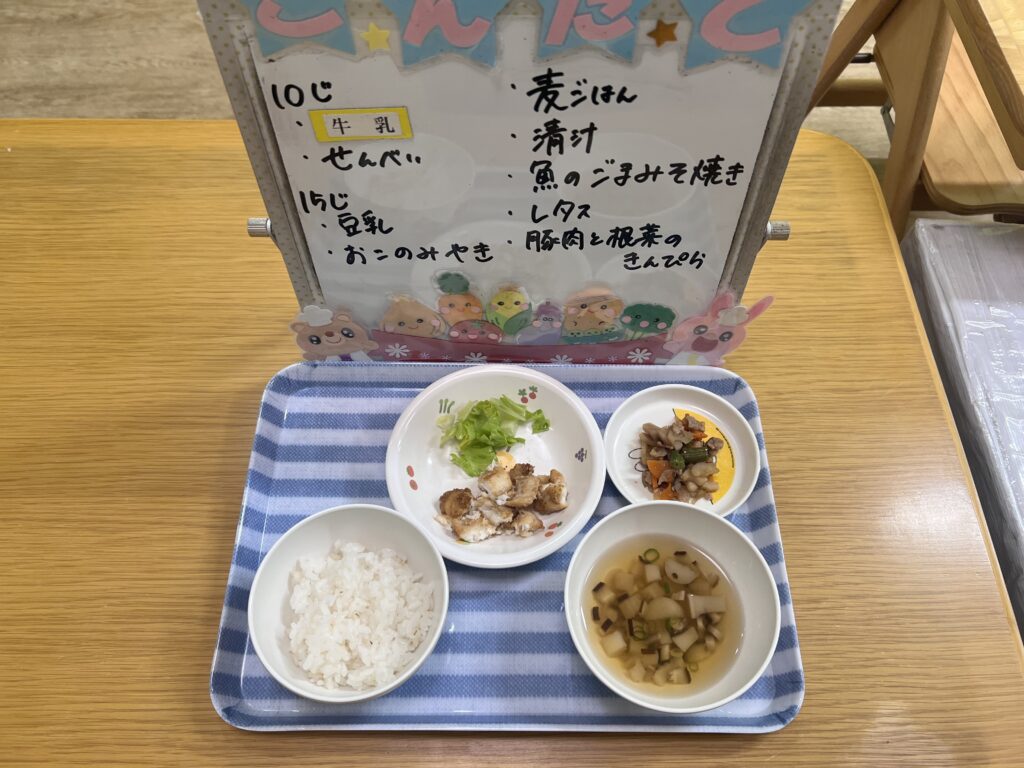 こんだて
10じ
・牛乳
・せんべい
15じ
・豆乳
・おこのみやき
・麦ごはん
・清汁
・魚のごまみそ焼き
・レタス
・豚肉と根菜の
きんぴら